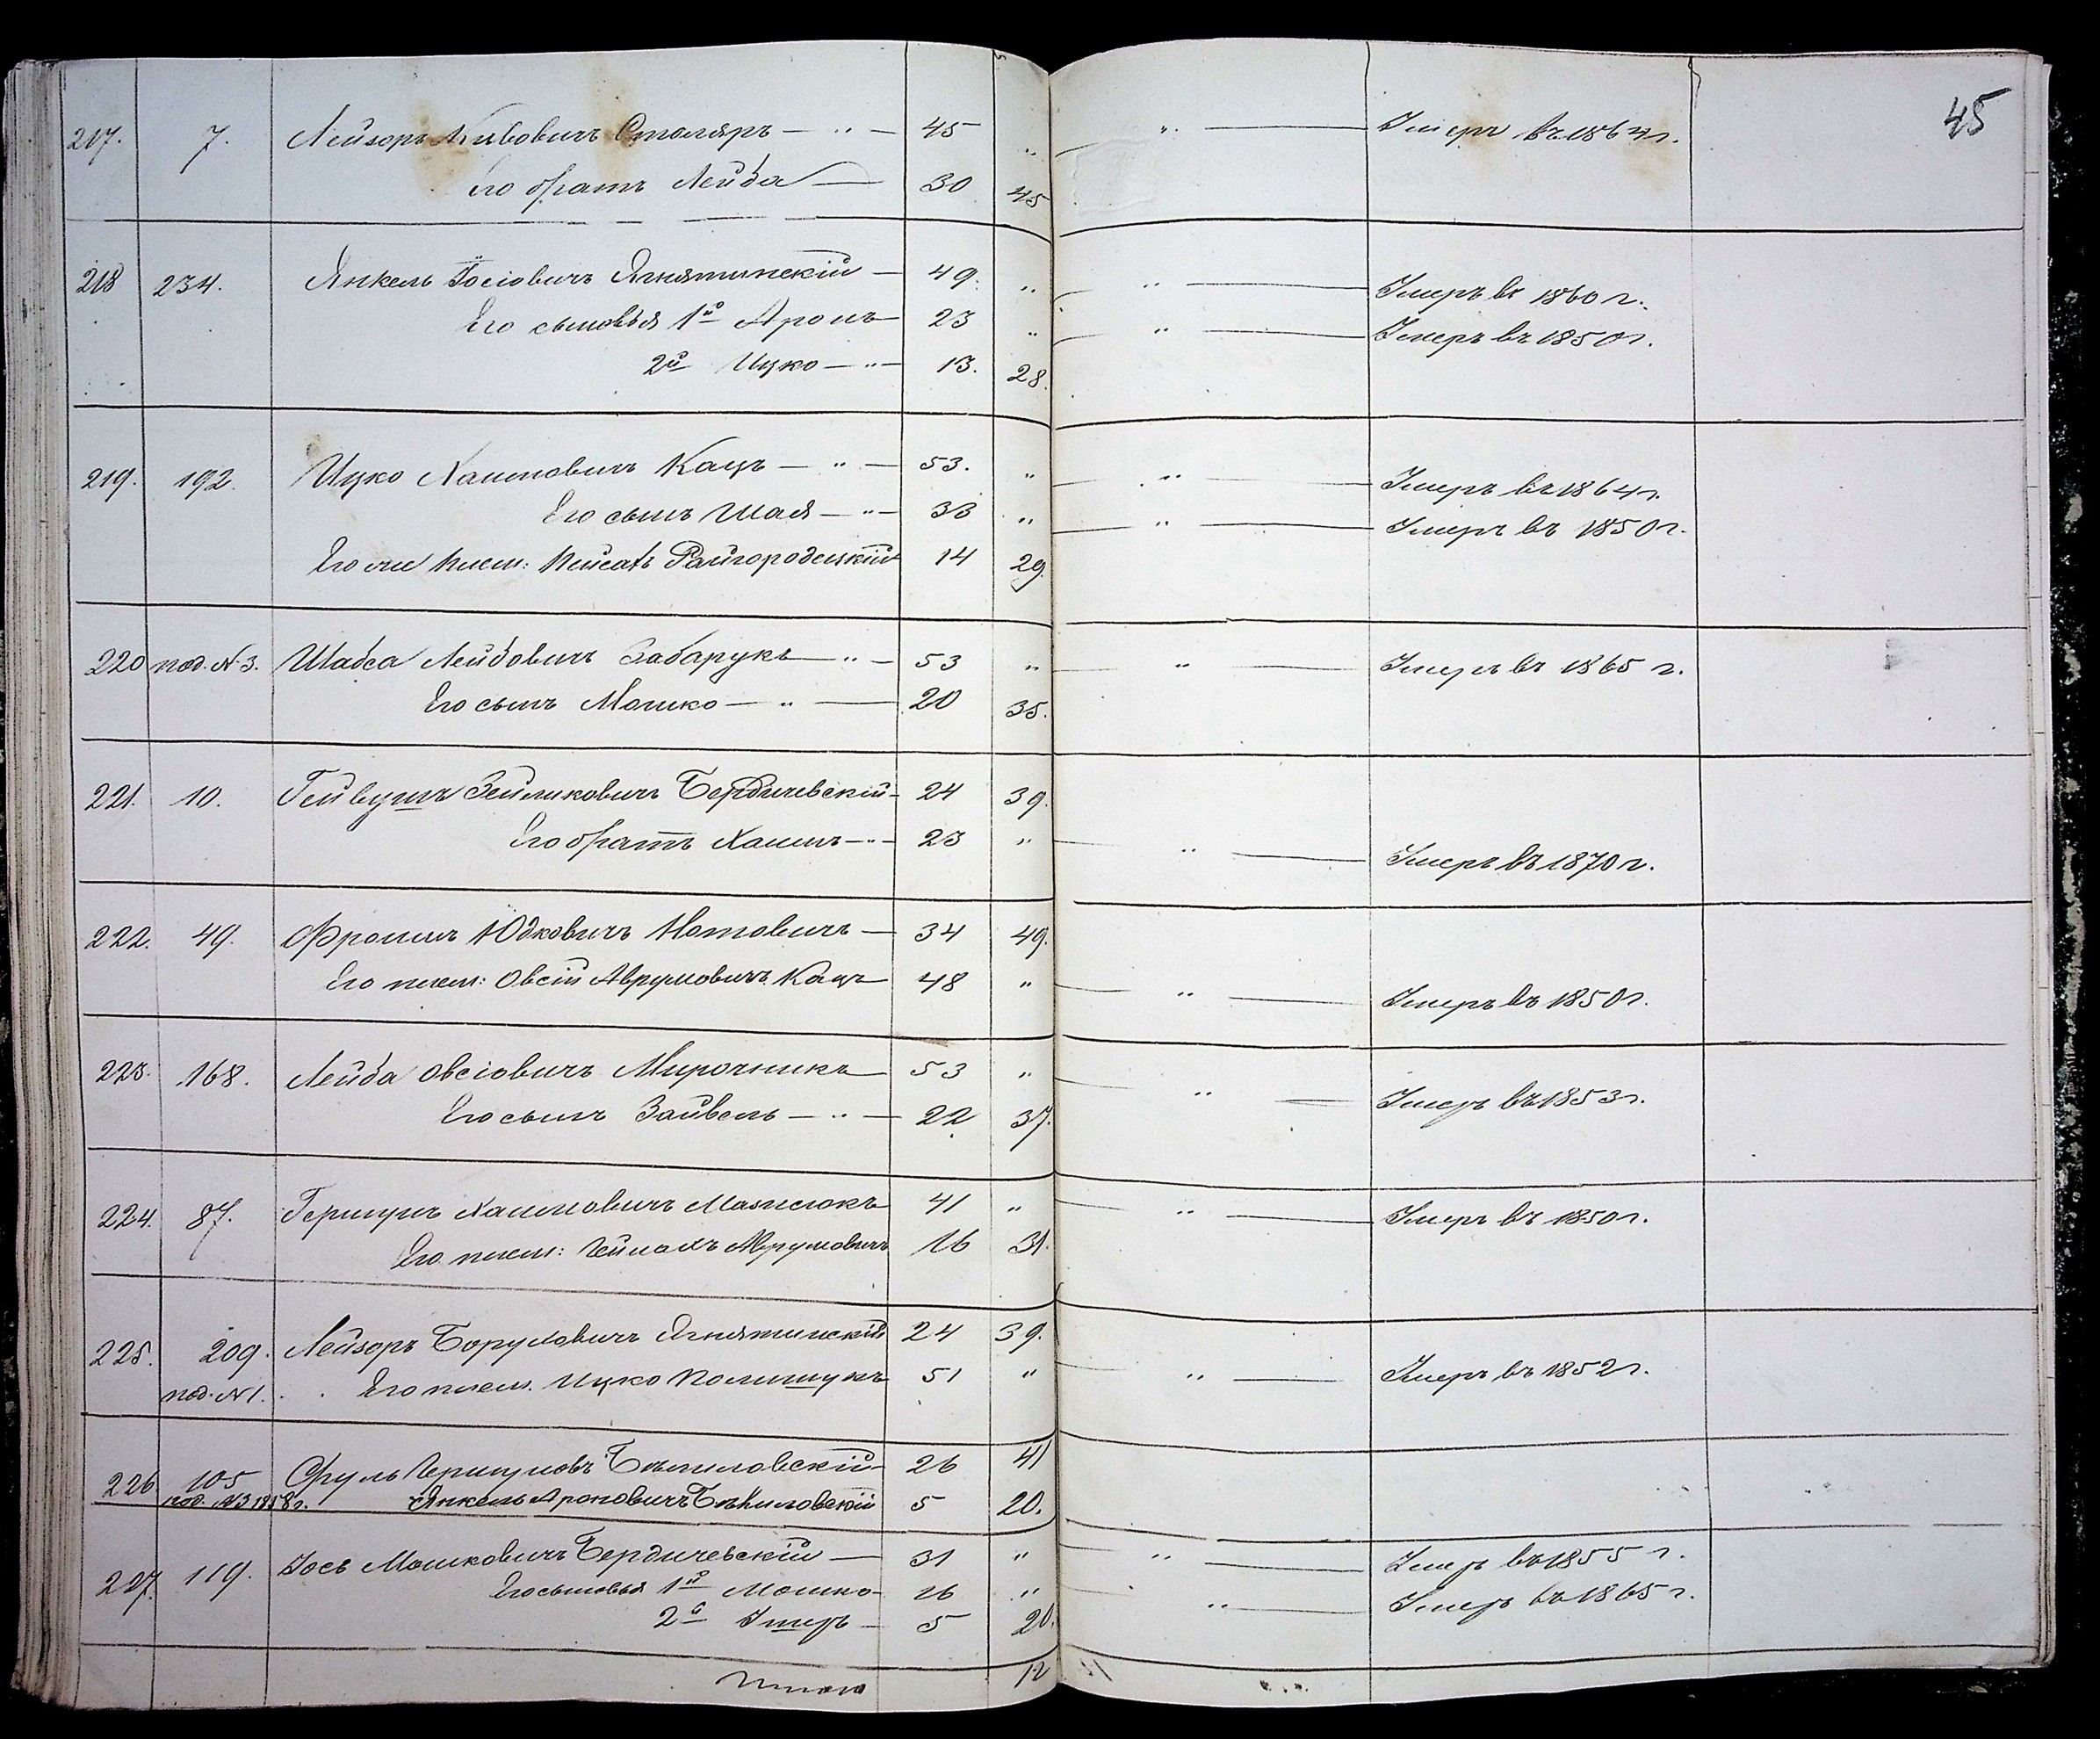 45
217. 7. Лейзоръ Кивовичъ Столяръ — „ — 45 „ „ — Умеръ въ 1864 г.
Его братъ Лейба — 30 45
218 234. Янкель Іосіовичъ Ягнятинскій — 49. „ „ — Умеръ въ 1860 г.
Его сыновья 1й Аронъ — 23 „ „ — Умеръ въ 1850 г.
2й Ицко — „ — 13. 28.
219. 192. Ицко Хаимовичъ Кацъ — „ — 53. „ „ — Умеръ въ 1864 г.
Его сынъ Шая — „ — 33 „ „ — Умеръ въ 1850 г.
Его же плем: Пейсахъ Райгородецкій 14 29.
220 под. № 3. Шабса Лейбовичъ Забарукъ — „ — 53 „ „ — Умеръ въ 1865 г.
Его сынъ Мошко — „ — 20 35.
221. 10. Гейвушъ Зейликовичъ Бердичевскій — 24 39.
Его братъ Хаимъ — „ — 23 „ „ — Умеръ въ 1870 г.
222. 49. Фроимъ Юдковичъ Нотовичъ — 34 49.
Его плем: Овсій Аврумовичъ Кацъ — 48 „ „ — Умеръ въ 1850 г.
223. 168. Лейба Овсіовичъ Мирочникъ — 53 „ „ — Умеръ въ 1853 г.
Его сынъ Зайвель — „ — 22 37.
224. 87. Гершунъ Хаимовичъ Мазнюкъ 41 „ „ — Умеръ въ 1850 г.
Его плем: Аврумовичъ 16 31.
225. 209. Лейзоръ Боруховичъ Ягнятинскій 24 39.
под. № 1. Его плем. Ицко Полищукъ 51 „ „ — Умеръ въ 1852 г.
226 105 Сруль 26 41
под. № 3 1858 г. Янкель Ароновичъ 5 20.
227. 119. Іось Мошковичъ Бердичевскій — 31 „ „ — Умеръ въ 1855 г.
Его сыновья 1й Мошко — 16 „ „ — Умеръ въ 1865 г.
2й Ушеръ — 5 20.
Итого 12